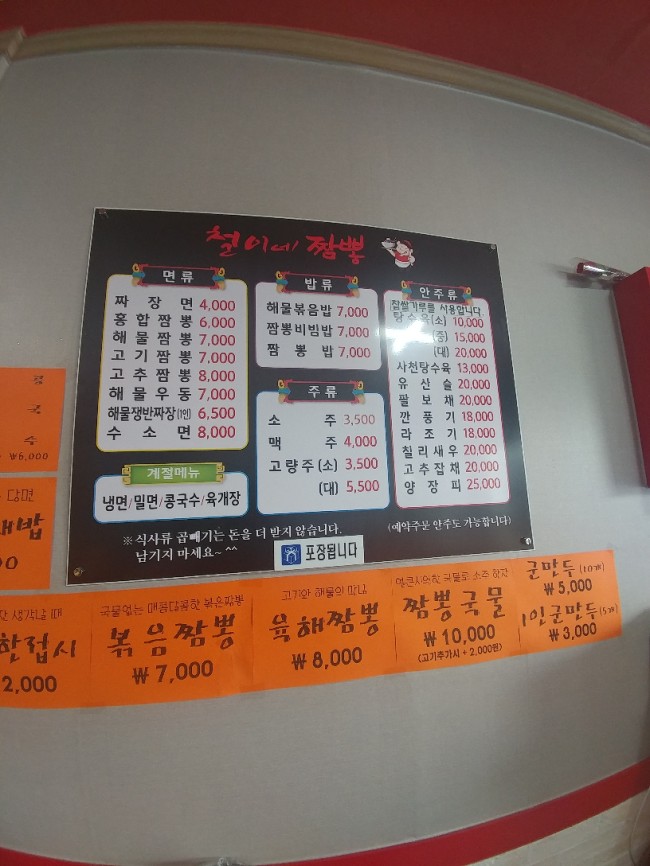 철이네 짬뽕
면류
짜장면 4,000
홍합짬뽕 6,000
해물짬뽕 7,000
고기짬뽕 7,000
고추짬뽕 8,000
해물우동 7,000
해물쟁반짜장(1인) 6,500
수소면 8,000
계절메뉴
냉면/밀면/콩국수/육개장
밥류
해물볶음밥 7,000
짬뽕비빔밥 7,000
짬뽕밥 7,000
주류
소주 3,500
맥주 4,000
고량주(소) 3,500
(대) 5,500
안주류
찹쌀가루를 사용합니다
탕수육(소) 10,000
(중) 15,000
(대) 20,000
사천탕수육 13,000
유산슬 20,000
팔보채 20,000
깐풍기 18,000
라조기 18,000
칠리새우 20,000
고추잡채 20,000
양장피 25,000
※식사류 곱빼기는 돈을 더 받지 않습니다.
남기지 마세요~^^
(예약주문 안주도 가능합니다)
포장됩니다
콩
국
수
₩6,000
는 당면
새밥
00
생각날 때
한접시
2,000
국물없는 매콤달콤한 볶은짬뽕
볶음짬뽕
₩7,000
고기와 해물의 만남
육해짬뽕
₩8,000
얼큰시원한 국물로 소주 한잔
짬뽕국물
₩10,000
(고기추가시 + 2,000원)
군만두(10개)
₩5,000
1인군만두(5개)
₩3,000